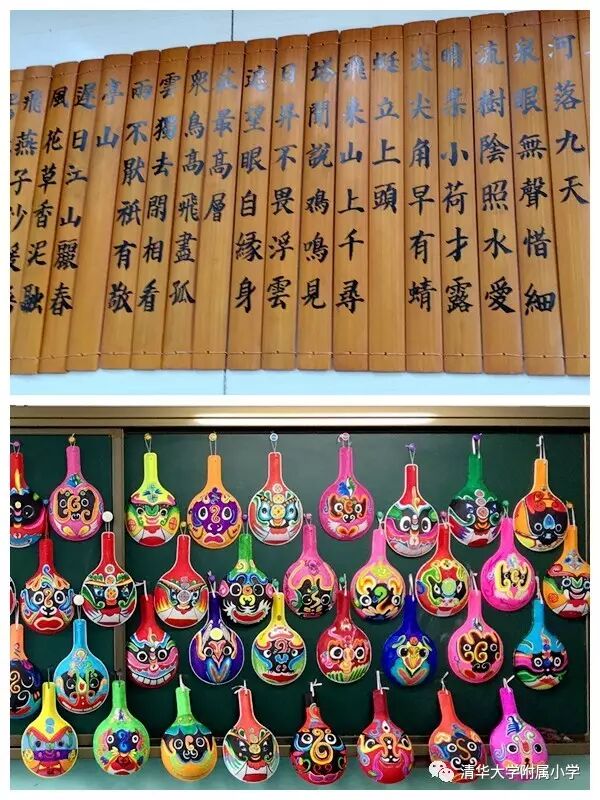 河落九天
泉眼無聲惜細
流樹陰照水愛
晴柔小荷才露
尖尖角早有蜻
蜓立上頭
飛來山上千尋
塔聞說鷄鳴見
日昇不畏浮雲
遮望眼自緣身
在最高層
衆鳥高飛盡孤
雲獨去閑相看
兩不厭祇有敬
亭山
遲日江山麗春
風花草香泥融
飛燕子沙暖
清华大学附属小学